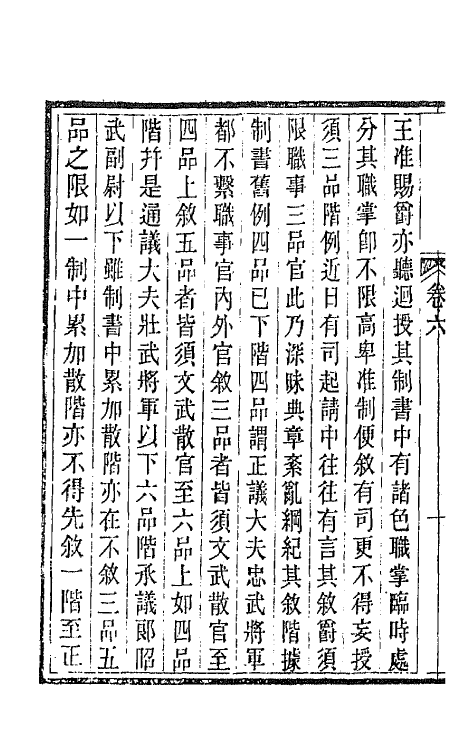 王准賜爵亦聽迴授其制書中有諸色職掌臨時處
分其職掌卽不限高卑准制便敘有司更不得妄授
須三品階例近日有司起請中往往有言其敘爵須
限職事三品官此乃深昧典章紊亂綱紀其敘階據
制書舊例四品已下階四品謂正議大夫忠武將軍
都不繫職事官內外官敘三品者皆須文武散官至
四品上敘五品者皆須文武散官至六品上如四品
階幷是通議大夫壯武將軍以下六品階承議郞昭
武副尉以下雖制書中累加散階亦在不敘三品五
品之限如一制中累加散階亦不得先敘一階至正
卷六
十